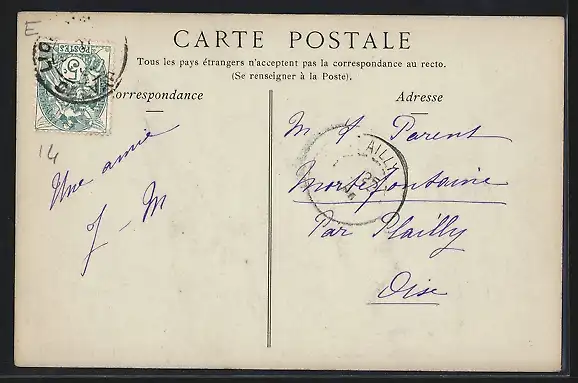 E
CARTE POSTALE
Tous les pays étrangers n'acceptent pas la correspondance au recto.
(Se renseigner à la Poste).
Correspondance
Adresse
POSTES
5
14
Une amie
J - M
M
Parent
AILLY
22
Mortefontaine
Par Plailly
Oise